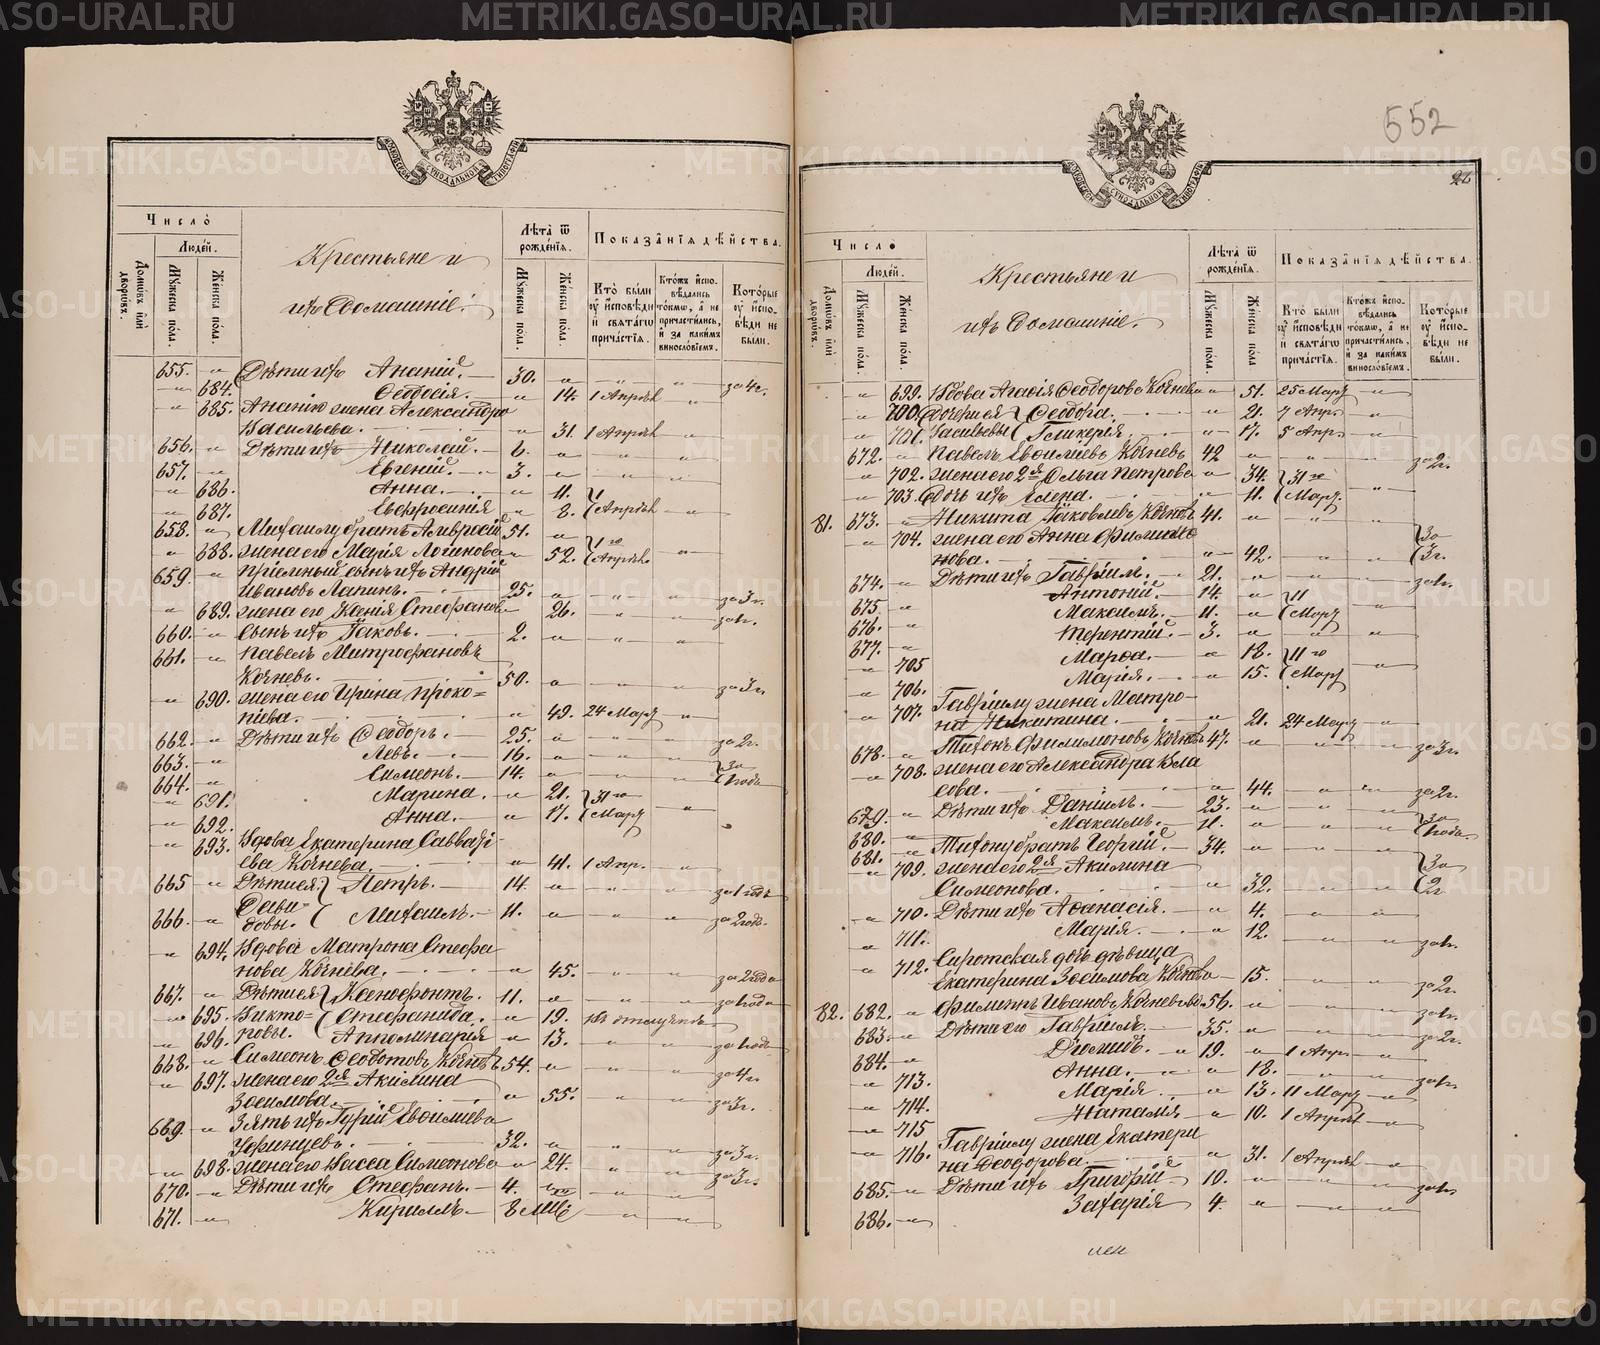 552
22
МОСКОВСКОЙ СѴНОДАЛЬНОЙ ТИПОГРАФІИ
Число
Людей.
Домовъ или дворовъ.
Мужеска пола.
Женска пола.
Крестьяне и
ихъ домашніе:
Лѣта ѿ рожденія.
Мужеска пола.
Женска пола.
Показанія дѣйства.
Кто были оу исповѣди и святагω причастія.
Ктожъ исповѣдались токмω, а не причастились, и за какимъ винословіемъ.
Которые оу исповѣди не были.
655. Дѣти ихъ Ананій. 30. за 4 г.
684. Ѳеодосія. 14. 1 Апрѣля
685. Ананію жена Александра
Васильева. 31. 1 Апрѣля
656. Дѣти ихъ Николай. 6.
657. Евгеній. 3.
686. Анна. 11. 1
687. Евфросинія 8. Апрѣля
658. Михаилу братъ Амвросій 51.
688. жена его Марія Логинова 52. 1го Апрѣля
659. пріемный сынъ ихъ Андрій
Ивановъ Лапинъ. 25. за 3 г.
689. жена его Ксенія Стефанова 26. за 1 г.
660. Сынъ ихъ Іаковъ. 2.
661. Павелъ Митрофановъ
Кочневъ. 50. за 3 г.
690. жена его Ирина Проко=
піева. 49. 24 Март
662. Дѣти ихъ Ѳеодоръ. 25. за 2 г.
663. Левъ. 16. за
664. Симеонъ. 14. 1 годъ
691. Марина. 21. 31го
692. Анна. 17. Март
693. Вдова Екатерина Савватѣ
ева Кочнева. 41. 1 Апр.
665 Дѣти ея Петръ. 14. за 1 годъ
Дави=
666. довы. Михаилъ. 11. за 2 года.
694. Вдова Матрона Стефа
нова Кочнева. 45. за 2 года
667. Дѣти ея Ксенофонтъ. 11. за 1 годъ
695. Викто= Стефанида. 19. Въ отлучкѣ
696. ровы. Апполинарія 13. за 1 годъ
668. Симеонъ Ѳеодотовъ Кочневъ 54. за 4 г.
697. жена его 2я Акилина
Зосимова. 55. за 3 г.
669. Зять ихъ Гурій Евфиміевъ
Уфинцевъ. 32. за 3 г.
698. жена его Васса Симеонова 24. за 3 г.
670. Дѣти ихъ Стефанъ. 4.
671. Кириллъ. 8 мцъ
Число
Людей.
Домовъ или дворовъ.
Мужеска пола.
Женска пола.
Крестьяне и
ихъ домашніе.
Лѣта ѿ рожденія.
Мужеска пола.
Женска пола.
Показанія дѣйства.
Кто были оу исповѣди и святагω причастія.
Ктожъ исповѣдались токмω, а не причастились, и за какимъ винословіемъ.
Которые оу исповѣди не были.
699. Вдова Агафія Ѳеодорова Кочнева 51. 25 Март
700. Дочери ея Ѳеодора. 21. 7 Апр.
701. Васильевы Гликерія. 17. 5 Апр.
672. Павелъ Евфиміевъ Кочневъ 42 за 2 г.
702. жена его 2я Ольга Петрова 34. 31го
703. Дочь ихъ Елена. 11. Март
81. 673. Никита Іаковлевъ Кочневъ 41. за
704. жена его Анна Филимо
нова. 42. 3 г.
674. Дѣти ихъ Гавріилъ. 21. за 1 г.
675. Антоній. 14. 11
676. Максимъ. 11. Март
677. Терентій. 3.
705 Марѳа. 18. 11го
706. Марія. 15. Март
707. Гавріилу жена Матро-
на Никитина. 21. 24 Март
678. Тихонъ Филимоновъ Кочневъ 47. за 3 г.
708. жена его Александра Вла
сова. 44. за 2 г.
679. Дѣти ихъ Даніилъ. 23. за
680. Максимъ. 11. 1 годъ
681. Тихону братъ Георгій. 34. за
709. жена его 2я Акилина
Симеонова. 32. 2 г
710. Дѣти ихъ Аѳанасія. 4.
711. Марія. 12. за 1 г.
712. Сиротская дочь дѣвица
Екатерина Зосимова Кочнева 15. за 2 г.
82. 682. Филиппъ Ивановъ Кочневъ вд. 56. за 1 г.
683. Дѣти его Гавріилъ. 35. за 2 г.
684. Діомидъ. 19. 1 Апр.
713. Анна. 18. за 1 г.
714. Марія. 13. 11 Март
715 Наталія. 10. 1 Апрѣля
716. Гавріилу жена Екатери
на Ѳеодорова. 31. 1 Апрѣля
685. Дѣти ихъ Григорій. 10. за 1 г.
686. Захарія 4.